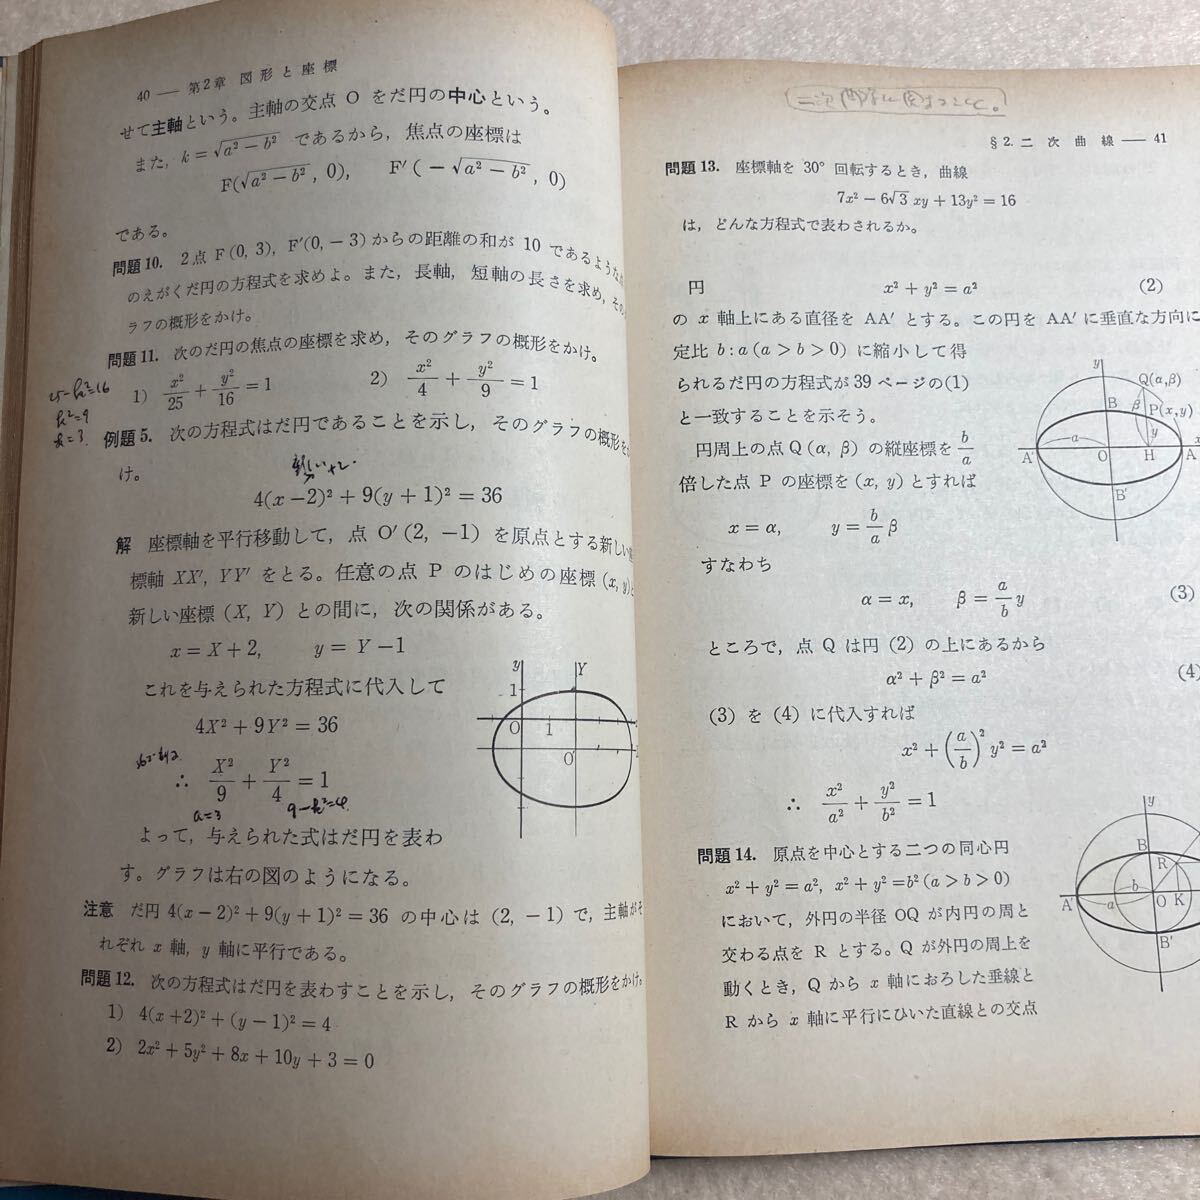 40 — 第2章 図形と座標
せて主軸という。主軸の交点 O をだ円の中心という。
また, k = √(a² − b²) であるから, 焦点の座標は
F(√(a² − b²), 0), F′(−√(a² − b²), 0)
である。
問題10. 2点 F(0, 3), F′(0, −3) からの距離の和が 10 であるような
のえがくだ円の方程式を求めよ。また, 長軸, 短軸の長さを求め, その
ラフの概形をかけ。
問題11. 次のだ円の焦点の座標を求め, そのグラフの概形をかけ。
1) x²/25 + y²/16 = 1 2) x²/4 + y²/9 = 1
k²=9
k=3
例題5. 次の方程式はだ円であることを示し, そのグラフの概形を
け。
4(x−2)² + 9(y+1)² = 36
解 座標軸を平行移動して, 点 O′(2, −1) を原点とする新しい
標軸 XX′, YY′ をとる。任意の点 P のはじめの座標 (x, y) と
新しい座標 (X, Y) との間に, 次の関係がある。
x = X + 2, y = Y − 1
これを与えられた方程式に代入して
4X² + 9Y² = 36
∴ X²/9 + Y²/4 = 1
a=3 9−k²=4
よって, 与えられた式はだ円を表わ
す。グラフは右の図のようになる。
y Y
1
O 1
O′
注意 だ円 4(x−2)² + 9(y+1)² = 36 の中心は (2, −1) で, 主軸がそ
れぞれ x 軸, y 軸に平行である。
問題12. 次の方程式はだ円を表わすことを示し, そのグラフの概形をかけ。
1) 4(x+2)² + (y−1)² = 4
2) 2x² + 5y² + 8x + 10y + 3 = 0
§2. 二次曲線 — 41
問題13. 座標軸を 30° 回転するとき, 曲線
7x² − 6√3 xy + 13y² = 16
は, どんな方程式で表わされるか。
円 x² + y² = a² (2)
の x 軸上にある直径を AA′ とする。この円を AA′ に垂直な方向に
定比 b : a (a > b > 0) に縮小して得
られるだ円の方程式が 39 ページの(1)
と一致することを示そう。
円周上の点 Q(α, β) の縦座標を b/a
倍した点 P の座標を (x, y) とすれば
x = α, y = b/a β
すなわち
α = x, β = a/b y (3)
ところで, 点 Q は円 (2) の上にあるから
α² + β² = a² (4)
(3) を (4) に代入すれば
x² + (a/b)² y² = a²
∴ x²/a² + y²/b² = 1
y
Q(α,β)
B β P(x,y)
a y
A′ O H A x
B′
問題14. 原点を中心とする二つの同心円
x² + y² = a², x² + y² = b² (a > b > 0)
において, 外円の半径 OQ が内円の周と
交わる点を R とする。Q が外円の周上を
動くとき, Q から x 軸におろした垂線と
R から x 軸に平行にひいた直線との交点
y
B R
b
A′ a O K
B′